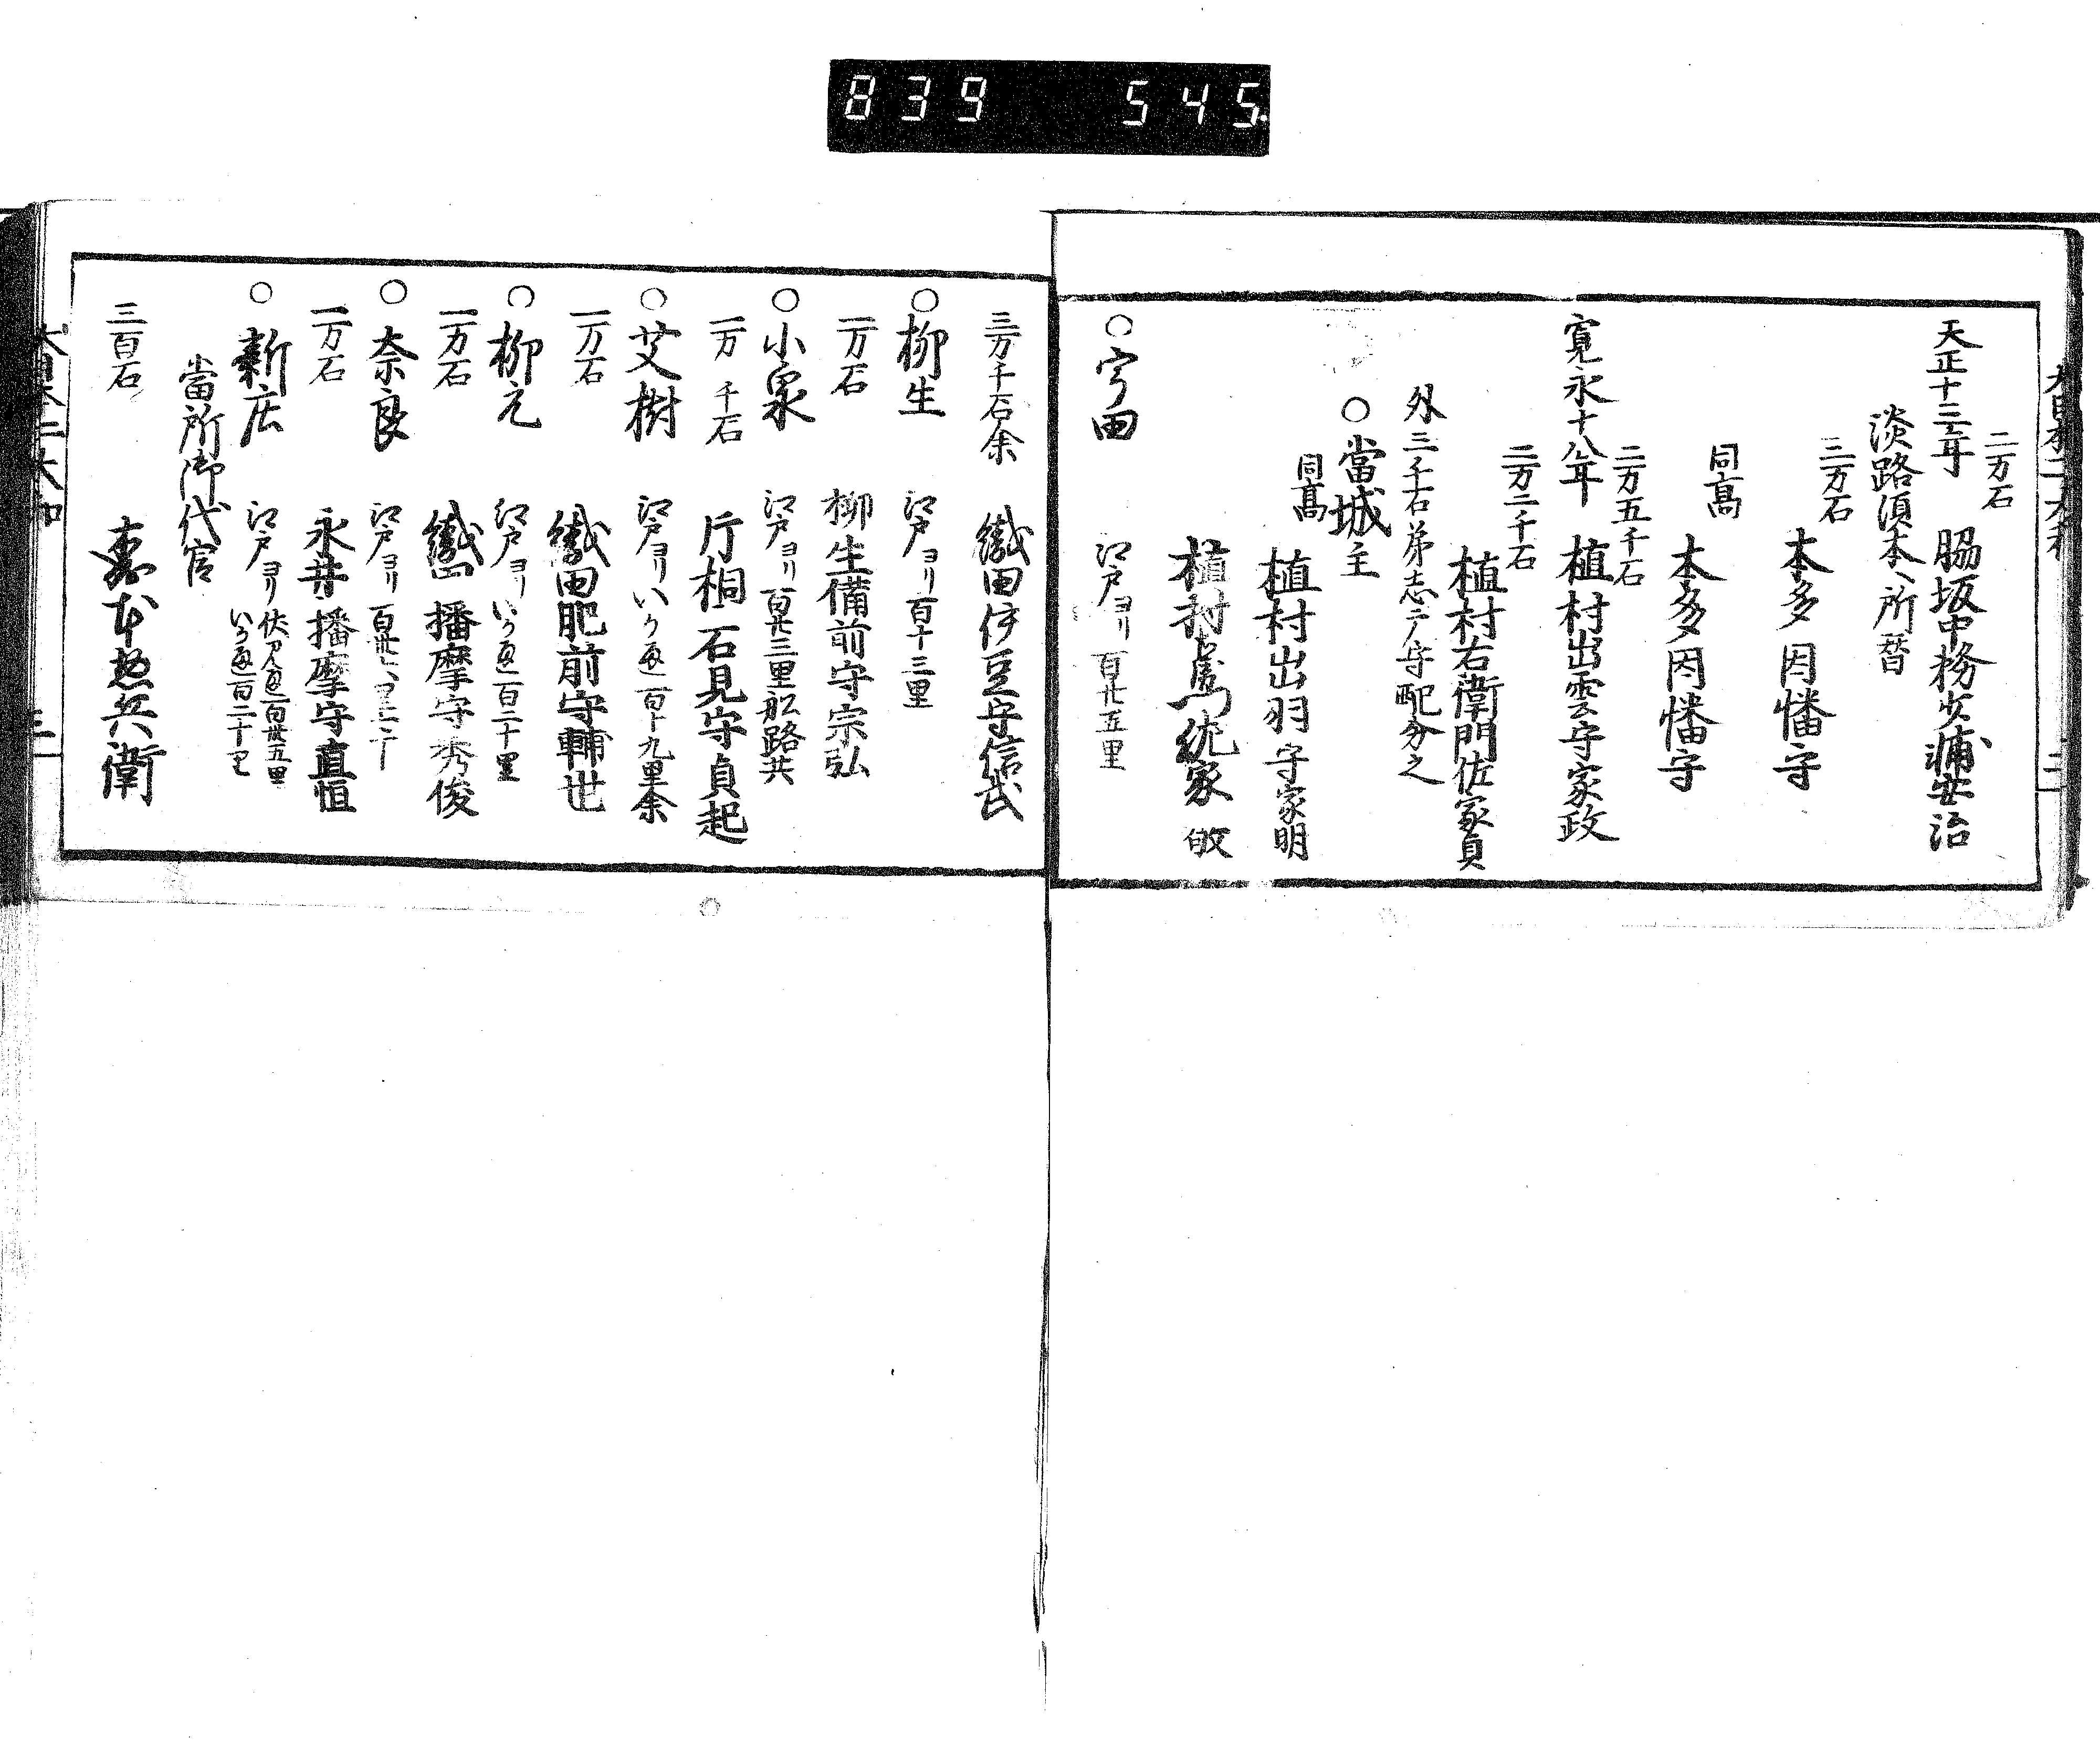 839 545
二万石
天正十三年 脇坂中務少輔安治
淡路須本へ所替
三万石
本多因幡守
同高
本多因幡守
二万五千石
寛永十八年 植村出雲守家政
二万二千石
植村右衛門佐家貞
外三千石弟志ニ 守配分之
○當城主
同高
植村出羽守家明
植村 家敬
○宇田 江戸ヨリ百廾五里
三万千石余 織田伊豆守信武
○柳生 江戸ヨリ百十三里
一万石 柳生備前守宗弘
○小泉 江戸ヨリ百廾三里船路共
一万千石 片桐石見守貞起
○芝樹 江戸ヨリいか通百十九里余
一万石 織田肥前守輔世
○柳元 江戸ヨリいか通百二十里
一万石 織田播摩守秀俊
○奈良 江戸ヨリ
一万石 永井播摩守直恒
○新庄 江戸ヨリ 伏見通百卅五里
いか通百二十里
當所御代官
三百石 兵衛
大日本二大和